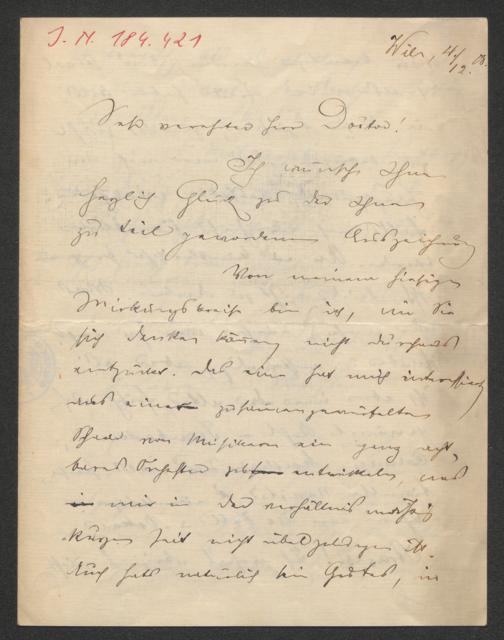 I. N. 184.421
Wien, 4/12. 08.
Sehr verehrter Herr Doctor!
Ich wünsche Ihnen
herzlich Glück zu der Ihnen
zu teil gewordenen Auszeichnung
Von meinem hiesigen
Wirkungskreise bin ich, wie Sie
sich denken können nicht durchaus
entzückt. Das eine hat mich interessirt,
aus einer zusammengewürfelten
Schaar von Musikern ein ganz acht-
bares Orchester zu entwickeln, was
mir in der verhältnismäßig
kurzen Zeit nicht übel gelungen ist.
Auch hats natürlich sein Gutes, in